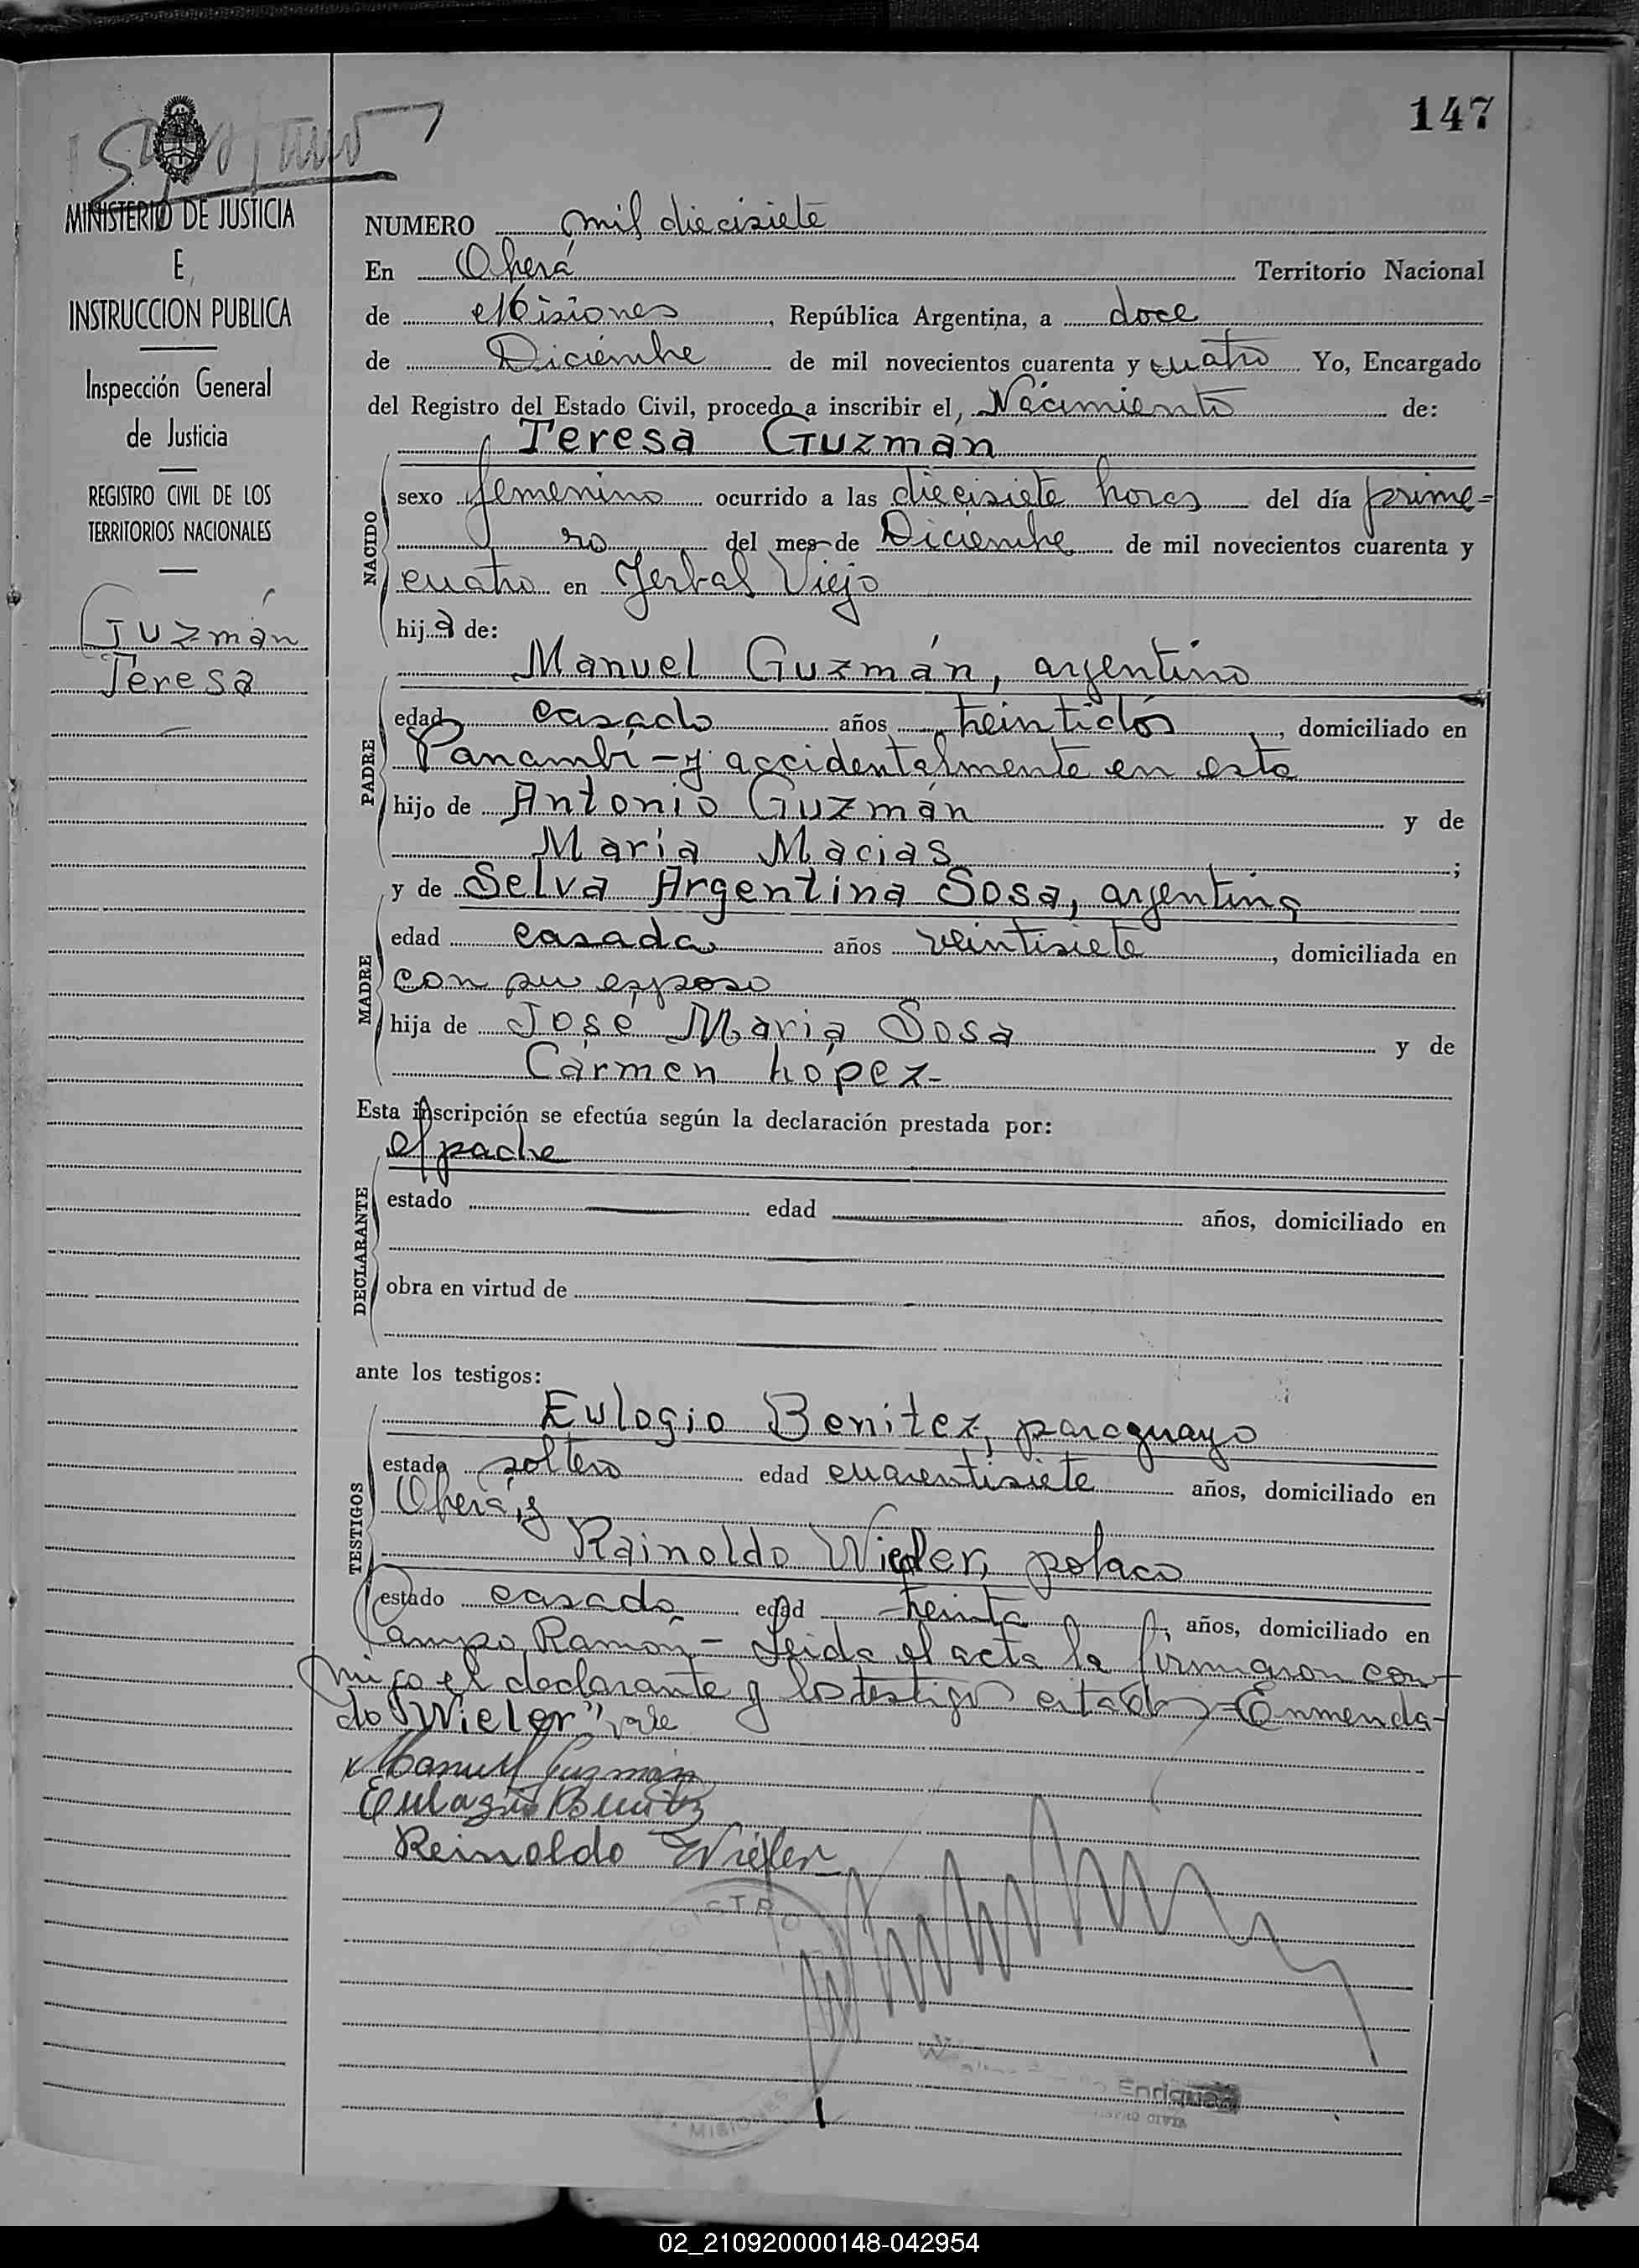 147
MINISTERIO DE JUSTICIA
E
INSTRUCCION PUBLICA
Inspección General
de Justicia
REGISTRO CIVIL DE LOS
TERRITORIOS NACIONALES
Guzmán
Teresa
NUMERO mil diecisiete
En Oberá Territorio Nacional
de Misiones, República Argentina, a doce
de Diciembre de mil novecientos cuarenta y cuatro Yo, Encargado
del Registro del Estado Civil, procedo a inscribir el, Nacimiento de:
Teresa Guzman
NACIDO
sexo femenino ocurrido a las diecisiete horas del día prime=
ro del mes de Diciembre de mil novecientos cuarenta y
cuatro en Yerbal Viejo
hija de:
Manuel Guzmán, argentino
PADRE
edad casado años treintidós, domiciliado en
Panambí - y accidentalmente en esta
hijo de Antonio Guzmán y de
María Macias ;
y de Selva Argentina Sosa, argentina
MADRE
edad casada años veintisiete, domiciliada en
con su esposo
hija de José María Sosa y de
Carmen López-
Esta inscripción se efectúa según la declaración prestada por:
el padre
DECLARANTE
estado edad años, domiciliado en
obra en virtud de
ante los testigos:
TESTIGOS
Eulogio Benitez, paraguayo
estado soltero edad cuarentisiete años, domiciliado en
Oberá, y
Rainoldo Wieler, polaco
estado casado edad treinta, años, domiciliado en
Campo Ramón - Leida el acta la firmaron con-
migo el declarante y los testigos citados - Enmenda-
do "Wieler" vale
Manuel Guzmán
Eulogio Benitez
Reinoldo Wieler
REGISTRO
MISIONES
Enrique
02_210920000148-042954